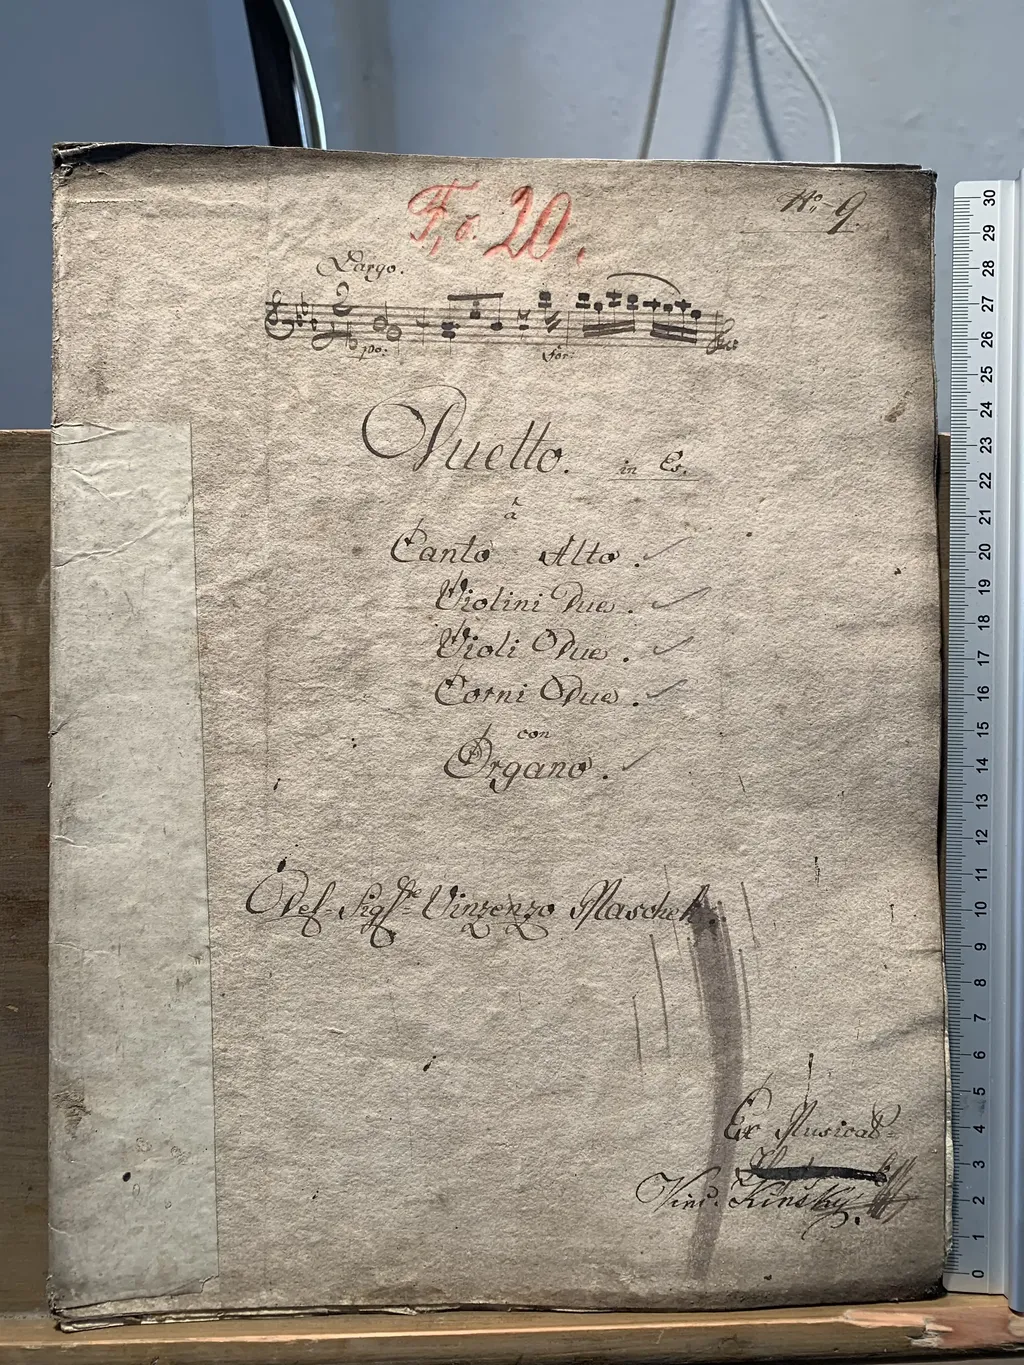 No. 9.
F, o. 20.
Largo.
po. for:
Duetto. in Es.
à
Canto Alto.
Violini Due.
Violi Due.
Corni Due.
con
Organo.
Del Sigre Vinzenzo Maschek.
Ex Musical
Vinc. Kinsky.
30
29
28
27
26
25
24
23
22
21
20
19
18
17
16
15
14
13
12
11
10
9
8
7
6
5
4
3
2
1
0